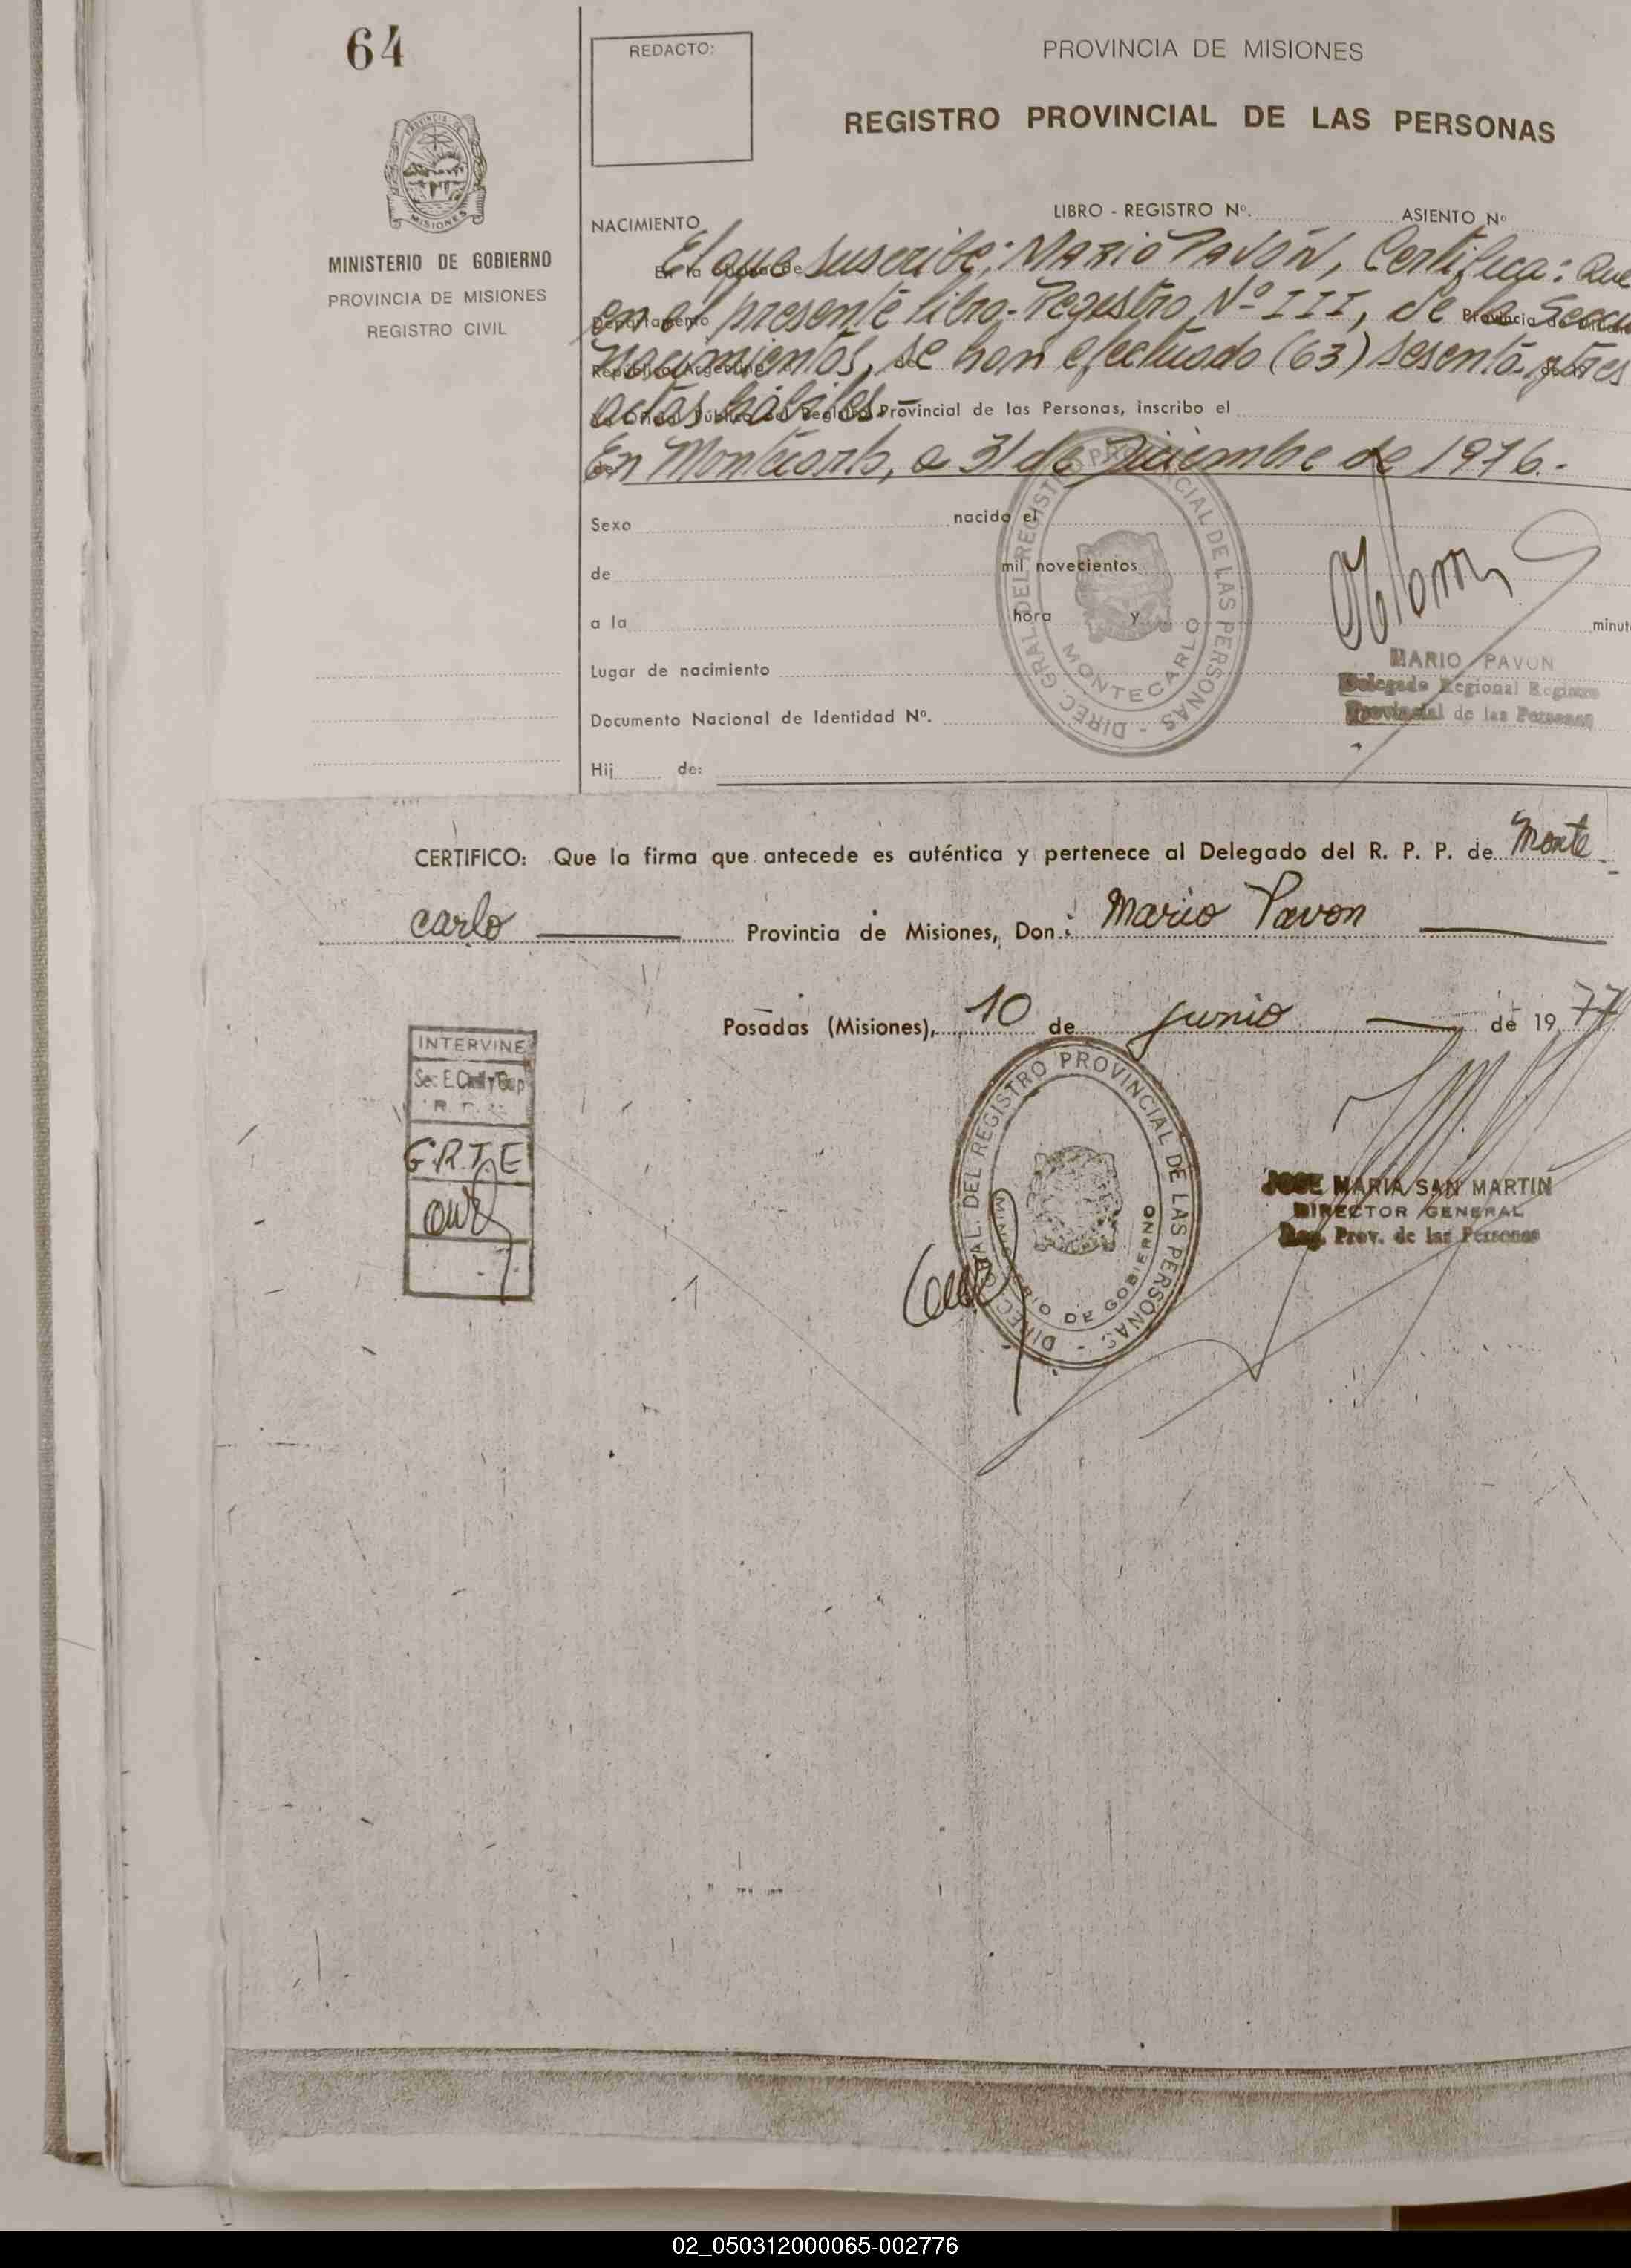 64
REDACTO:
PROVINCIA DE MISIONES
REGISTRO PROVINCIAL DE LAS PERSONAS
PROVINCIA DE
MISIONES
MINISTERIO DE GOBIERNO
PROVINCIA DE MISIONES
REGISTRO CIVIL
LIBRO - REGISTRO Nº. ASIENTO Nº
NACIMIENTO
El que suscribe; MARIO PAVÓN, Certifica: Que
en el presente libro-Registro Nº III, de la Secci
Departamento Provincia de
nacimientos, se han efectuado (63) sesenta y tres
República Argentina
actas hábiles.
Oficial Público del Registro Provincial de las Personas, inscribo el
En Montecarlo, a 31 de Diciembre de 1976.-
Sexo nacido el
de mil novecientos
a la hora y minut
Lugar de nacimiento
Documento Nacional de Identidad Nº.
Hij de:
DIREC. GRAL. DEL REGISTRO PROVINCIAL DE LAS PERSONAS -
MONTECARLO
MARIO PAVON
Delegado Regional Registro
Provincial de las Personas
CERTIFICO: Que la firma que antecede es auténtica y pertenece al Delegado del R. P. P. de Monte
carlo Provincia de Misiones, Don: Mario Pavon
Posadas (Misiones), 10 de junio de 1977
INTERVINE
G.R.T.E
DIREC. GRAL. DEL REGISTRO PROVINCIAL DE LAS PERSONAS -
MINISTERIO DE GOBIERNO
JOSE MARIA SAN MARTIN
DIRECTOR GENERAL
Reg. Prov. de las Personas
02_050312000065-002776